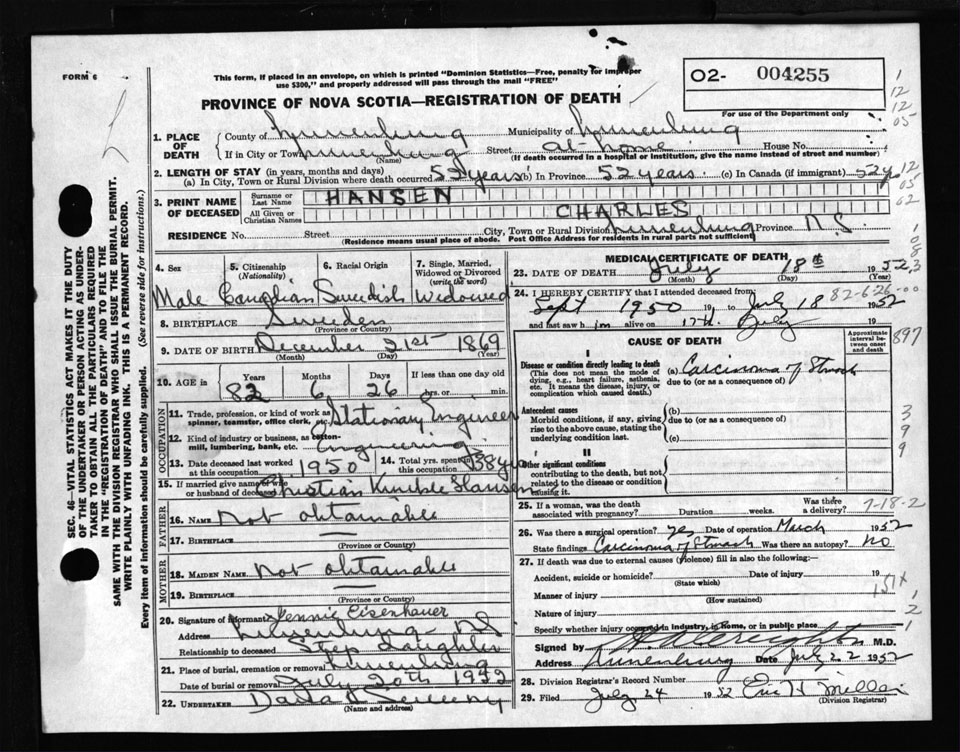 FORM 6
This form, if placed in an envelope, on which is printed "Dominion Statistics—Free, penalty for improper
use $300", and properly addressed will pass through the mail "FREE"
O2- 004255
For use of the Department only
PROVINCE OF NOVA SCOTIA—REGISTRATION OF DEATH
1. PLACE OF DEATH
County of Lunenburg Municipality of Lunenburg
If in City or Town Lunenburg Street at-home House No.
(Name) (If death occurred in a hospital or institution, give the name instead of street and number)
2. LENGTH OF STAY (in years, months and days)
(a) In City, Town or Rural Division where death occurred 52 years (b) In Province 52 years (c) In Canada (if immigrant) 52 y
3. PRINT NAME OF DECEASED
Surname or Last Name HANSEN
All Given or Christian Names CHARLES
RESIDENCE No. Street City, Town or Rural Division Lunenburg Province N.S
(Residence means usual place of abode. Post Office Address for residents in rural parts not sufficient)
4. Sex Male
5. Citizenship (Nationality) Canadian
6. Racial Origin Swedish
7. Single, Married, Widowed or Divorced (write the word) Widowed
8. BIRTHPLACE Sweden
(Province or Country)
9. DATE OF BIRTH December 21st 1869
(Month) (Day) (Year)
10. AGE in Years 82 Months 6 Days 26 If less than one day old hrs. or min.
OCCUPATION
11. Trade, profession, or kind of work as spinner, teamster, office clerk, etc. Stationary Engineer
12. Kind of industry or business, as cotton-mill, lumbering, bank, etc. Engineering
13. Date deceased last worked at this occupation 1950
14. Total yrs. spent in this occupation 38 yrs
15. If married give name of wife or husband of deceased Christian Kimble Hansen
FATHER
16. NAME Not obtainable
17. BIRTHPLACE —
(Province or Country)
MOTHER
18. MAIDEN NAME Not obtainable
19. BIRTHPLACE —
(Province or Country)
20. Signature of informant Jennie Eisenhauer
Address Lunenburg NS
Relationship to deceased Step Daughter
21. Place of burial, cremation or removal Lunenburg
Date of burial or removal July 20th 1952
22. UNDERTAKER Sweeny
(Name and address)
MEDICAL CERTIFICATE OF DEATH
23. DATE OF DEATH July 18th 1952
(Month) (Day) (Year)
24. I HEREBY CERTIFY that I attended deceased from:
Sept 1950 19 to July 18 1952
82-6-26-00
and last saw him alive on 17th July
CAUSE OF DEATH
Approximate interval between onset and death
I
Disease or condition directly leading to death
(This does not mean the mode of dying, e.g., heart failure, asthenia, etc. It means the disease, injury, or complication which caused death.)
(a) Carcinoma of Stomach
due to (or as a consequence of)
Antecedent causes
Morbid conditions, if any, giving rise to the above cause, stating the underlying condition last.
(b)
due to (or as a consequence of)
(c)
II
Other significant conditions
contributing to the death, but not related to the disease or condition causing it.
25. If a woman, was the death associated with pregnancy? Duration weeks. Was there a delivery?
7-18-2
26. Was there a surgical operation? yes Date of operation March 1952
State findings Carcinoma of Stomach Was there an autopsy? No
27. If death was due to external causes (violence) fill in also the following:
Accident, suicide or homicide? Date of injury 19
(State which)
Manner of injury
(How sustained)
151X
Nature of injury
Specify whether injury occurred in industry, in home, or in public place
Signed by M.D.
Address Lunenburg Date July 22 1952
28. Division Registrar's Record Number
29. Filed July 24 1952 Eric H Millar
(Division Registrar)
SEC. 46—VITAL STATISTICS ACT MAKES IT THE DUTY
OF THE UNDERTAKER OR PERSON ACTING AS UNDER-
TAKER TO OBTAIN ALL THE PARTICULARS REQUIRED
IN THE "REGISTRATION OF DEATH" AND TO FILE THE
SAME WITH THE DIVISION REGISTRAR WHO SHALL ISSUE THE BURIAL PERMIT.
WRITE PLAINLY WITH UNFADING INK. THIS IS A PERMANENT RECORD.
Every item of information should be carefully supplied. (See reverse side for instructions.)
1
12
12
05
12
05
02
1
0
8
3
897
3
9
9
1
2
1